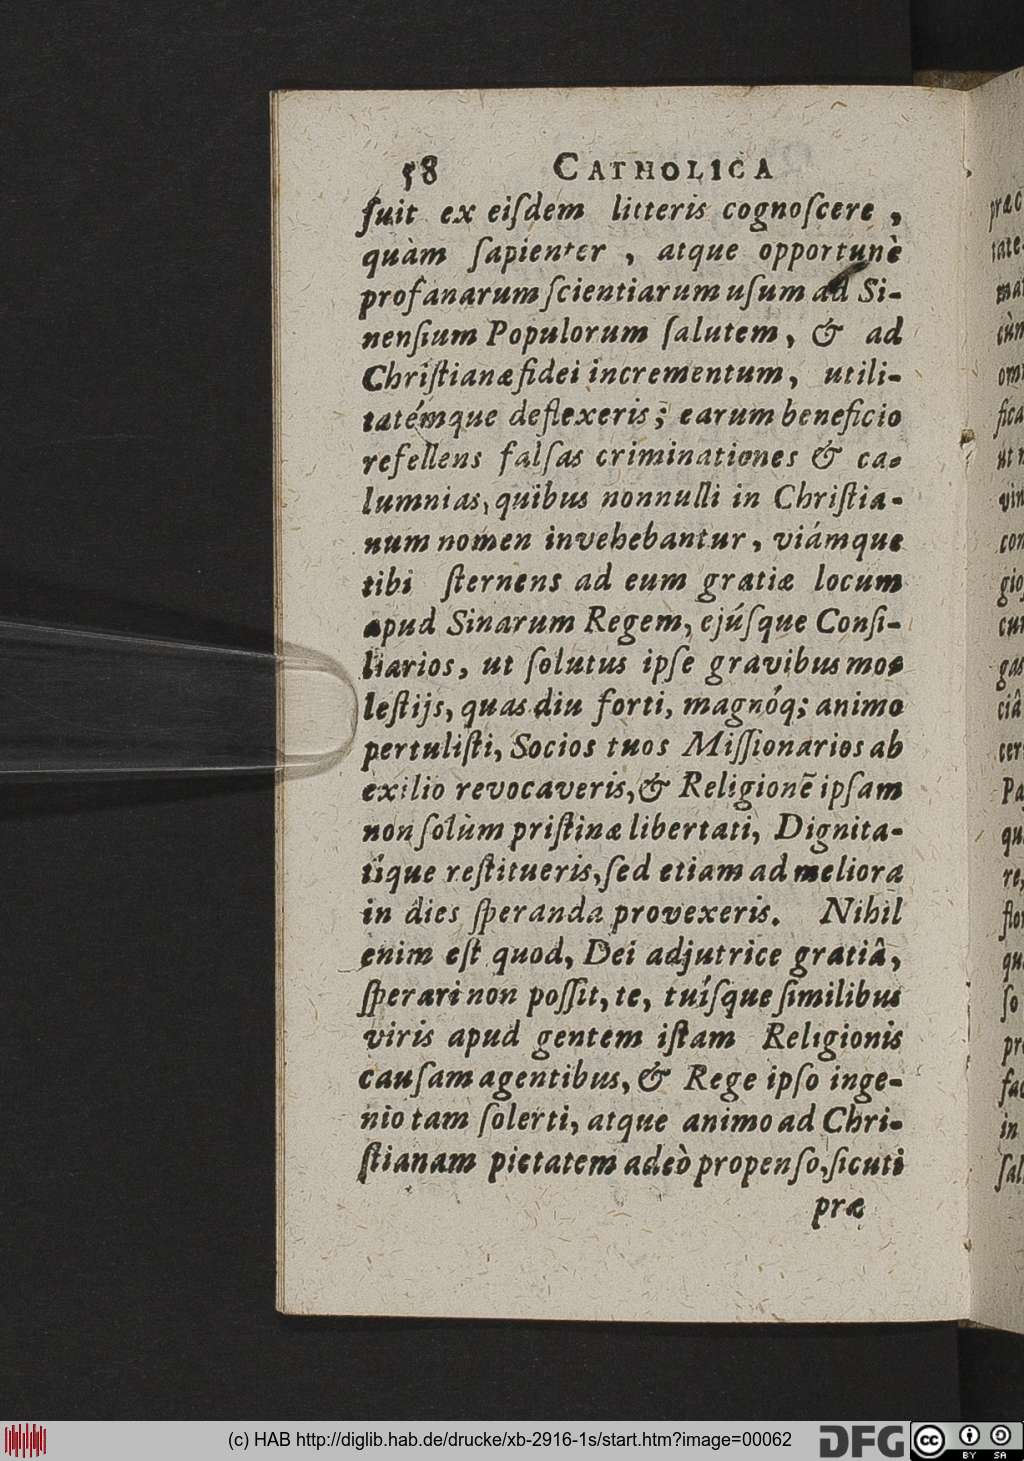 58 CATHOLICA
fuit ex eiſdem litteris cognoſcere ,
quàm ſapienter , atque opportunè
profanarum ſcientiarum uſum ad Si-
nenſium Populorum ſalutem, & ad
Chriſtianæ fidei incrementum, utili-
tatémque deflexeris; earum beneficio
refellens falſas criminationes & ca-
lumnias, quibus nonnulli in Chriſtia-
num nomen invehebantur, viámque
tibi ſternens ad eum gratiæ locum
apud Sinarum Regem, ejúſque Conſi-
liarios, ut ſolutus ipſe gravibus mo-
leſtijs, quas diu forti, magnóq; animo
pertuliſti, Socios tuos Miſſionarios ab
exilio revocaveris, & Religionẽ ipſam
non ſolùm priſtinæ libertati, Dignita-
tíque reſtitueris, ſed etiam ad meliora
in dies ſperanda provexeris. Nihil
enim eſt quod, Dei adjutrice gratiâ,
ſperari non poſſit, te, tuíſque ſimilibus
viris apud gentem iſtam Religionis
cauſam agentibus, & Rege ipſo inge-
nio tam ſolerti, atque animo ad Chri-
ſtianam pietatem adeò propenſo, ſicuti
præ
(c) HAB http://diglib.hab.de/drucke/xb-2916-1s/start.htm?image=00062
DFG
cc BY SA